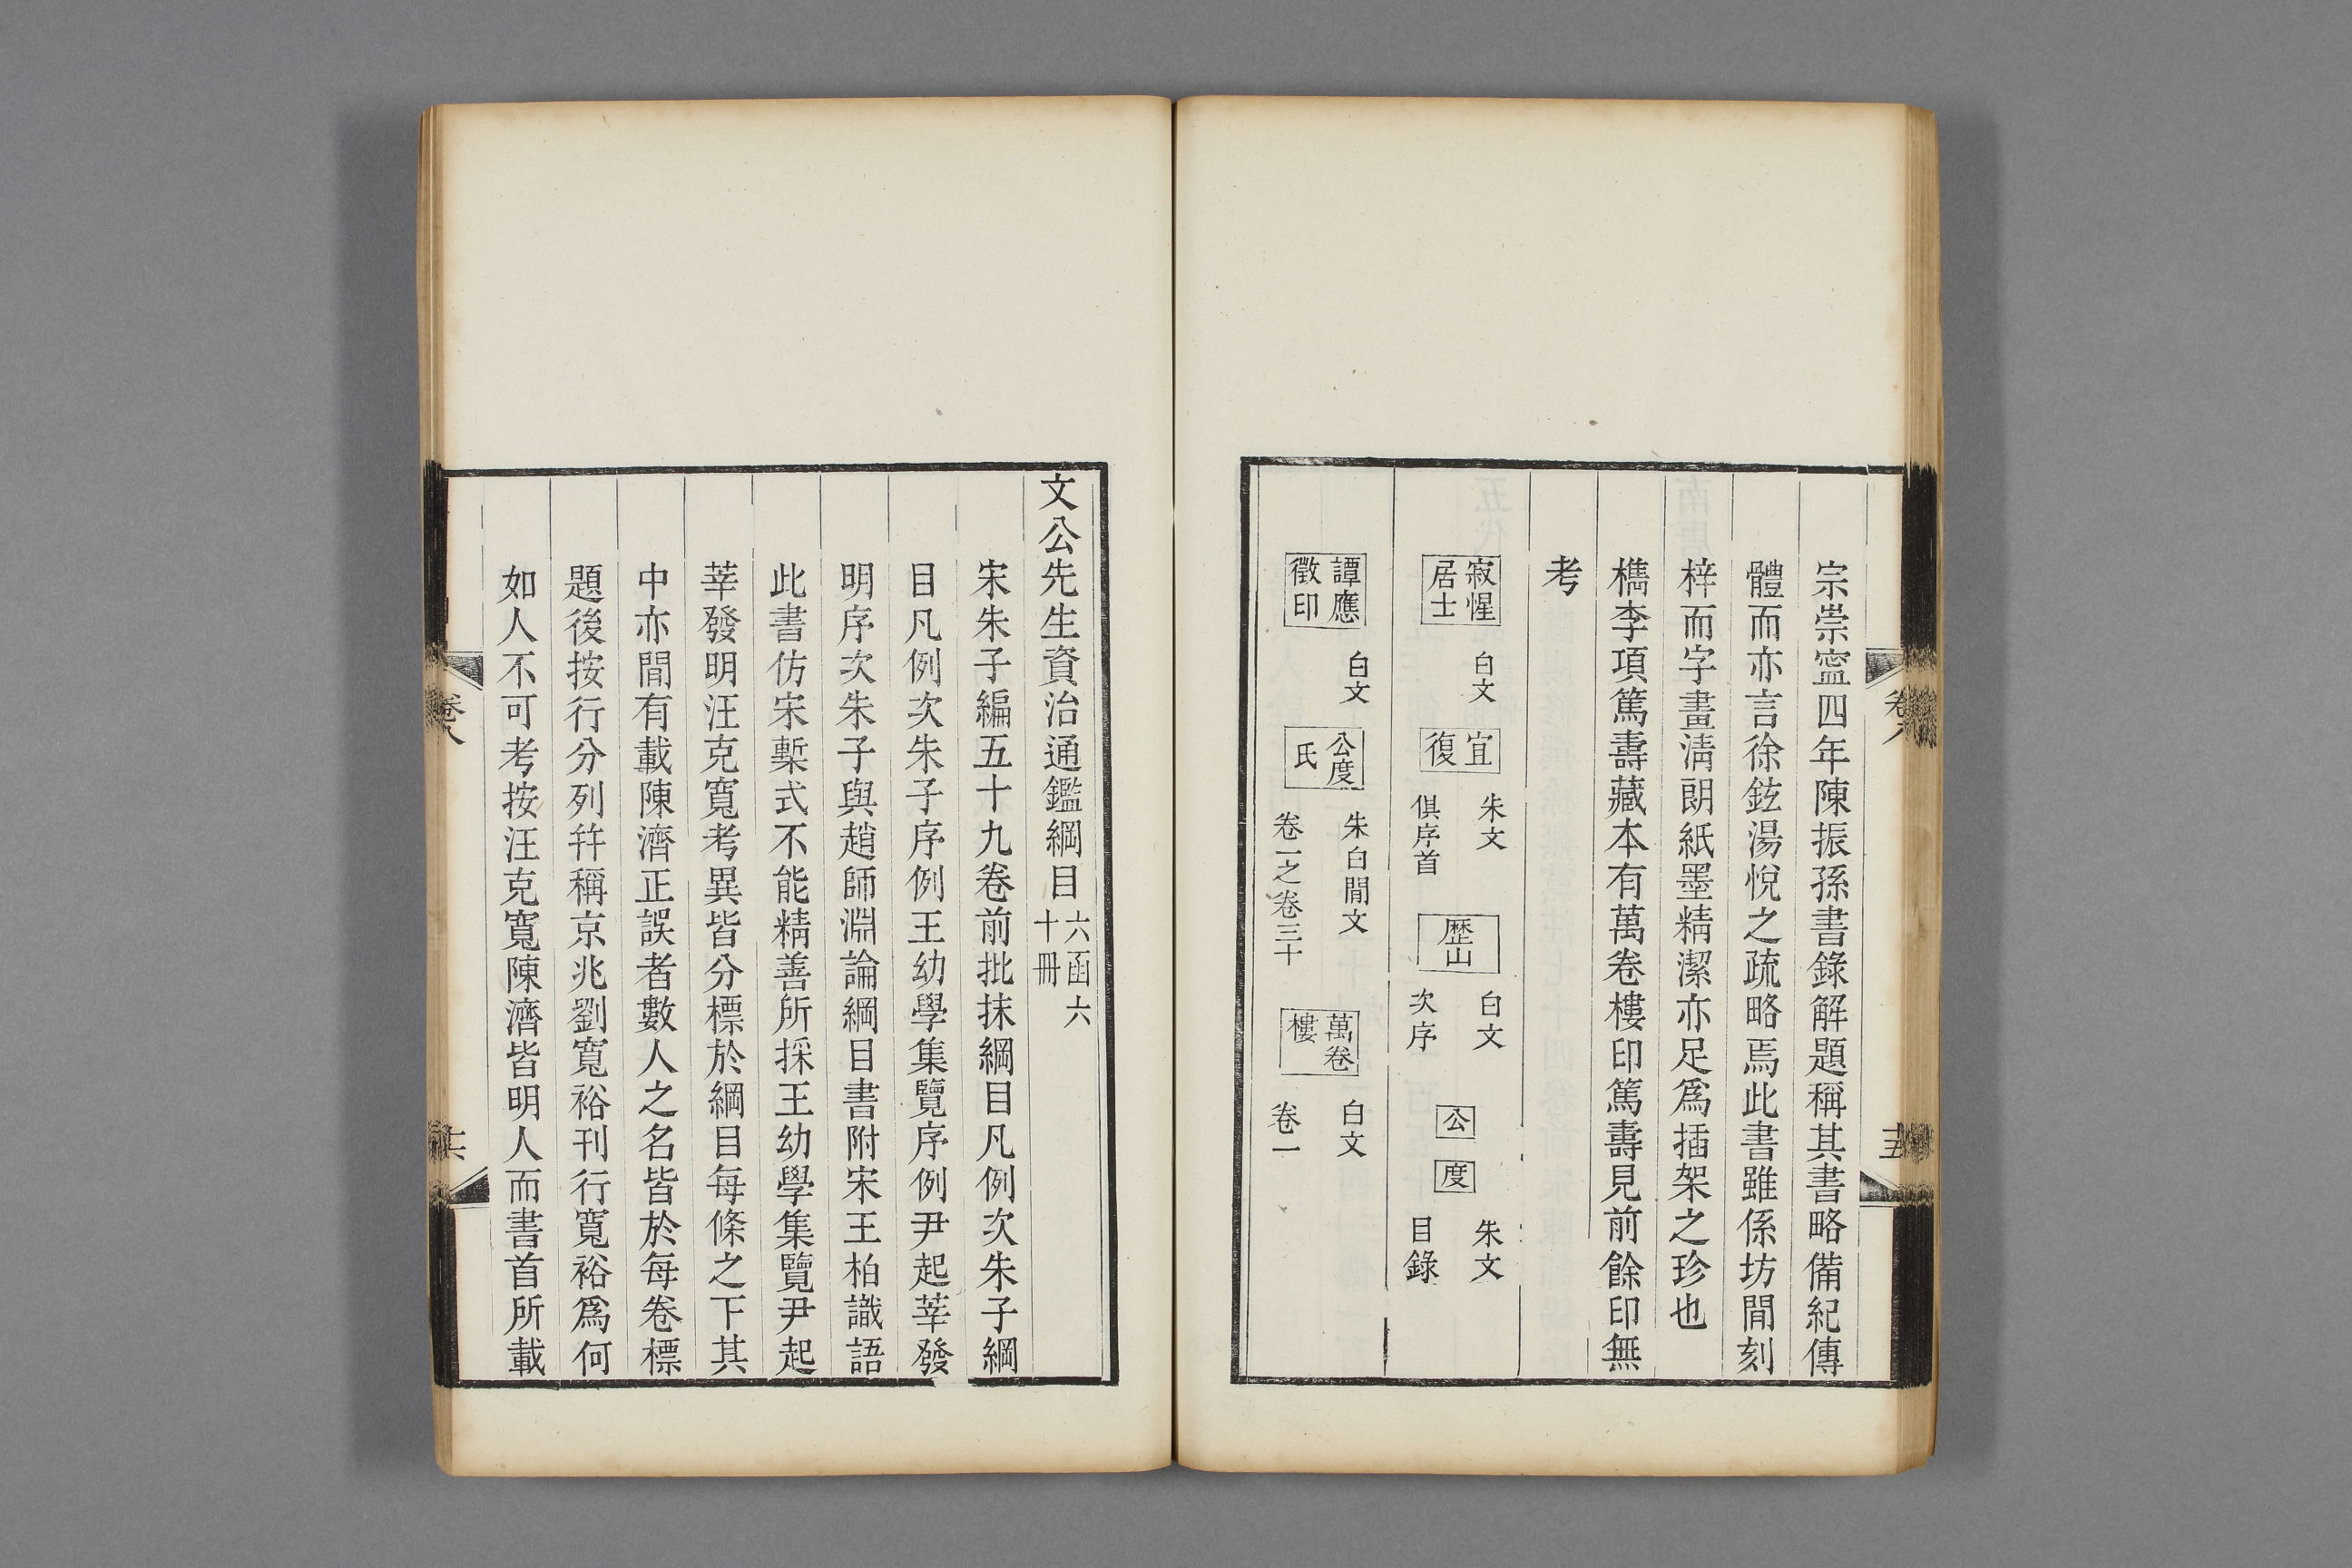 宗崇寍四年陳振孫書錄解題稱其書略備紀傳
體而亦言徐鉉湯悅之疏略焉此書雖係坊間刻
梓而字畫淸朗紙墨精潔亦足爲插架之珍也
檇李項篤壽藏本有萬卷樓印篤壽見前餘印無
考
寂惺居士
白文
宜復
朱文
俱序首
歷山
白文
次序
公
度
朱文
目錄
譚應徵印
白文
公度氏
朱白間文
卷一之卷三十
萬卷樓
白文
卷一
卷八
十五
文公先生資治通鑑綱目六函六十冊
宋朱子編五十九卷前批抹綱目凡例次朱子綱
目凡例次朱子序例王幼學集覽序例尹起莘發
明序次朱子與趙師淵論綱目書附宋王柏識語
此書仿宋槧式不能精善所採王幼學集覽尹起
莘發明汪克寬考異皆分標於綱目每條之下其
中亦間有載陳濟正誤者數人之名皆於每卷標
題後按行分列幷稱京兆劉寬裕刊行寬裕爲何
如人不可考按汪克寬陳濟皆明人而書首所載
卷八
十六